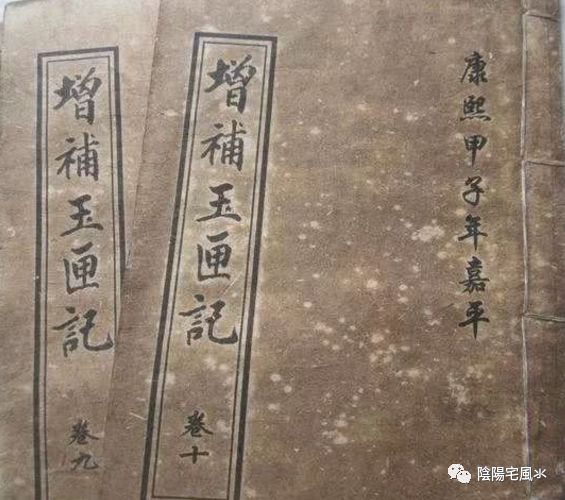 康熙甲子年嘉平
增補玉匣記
卷十
增補玉匣記
卷九
陰陽宅風水